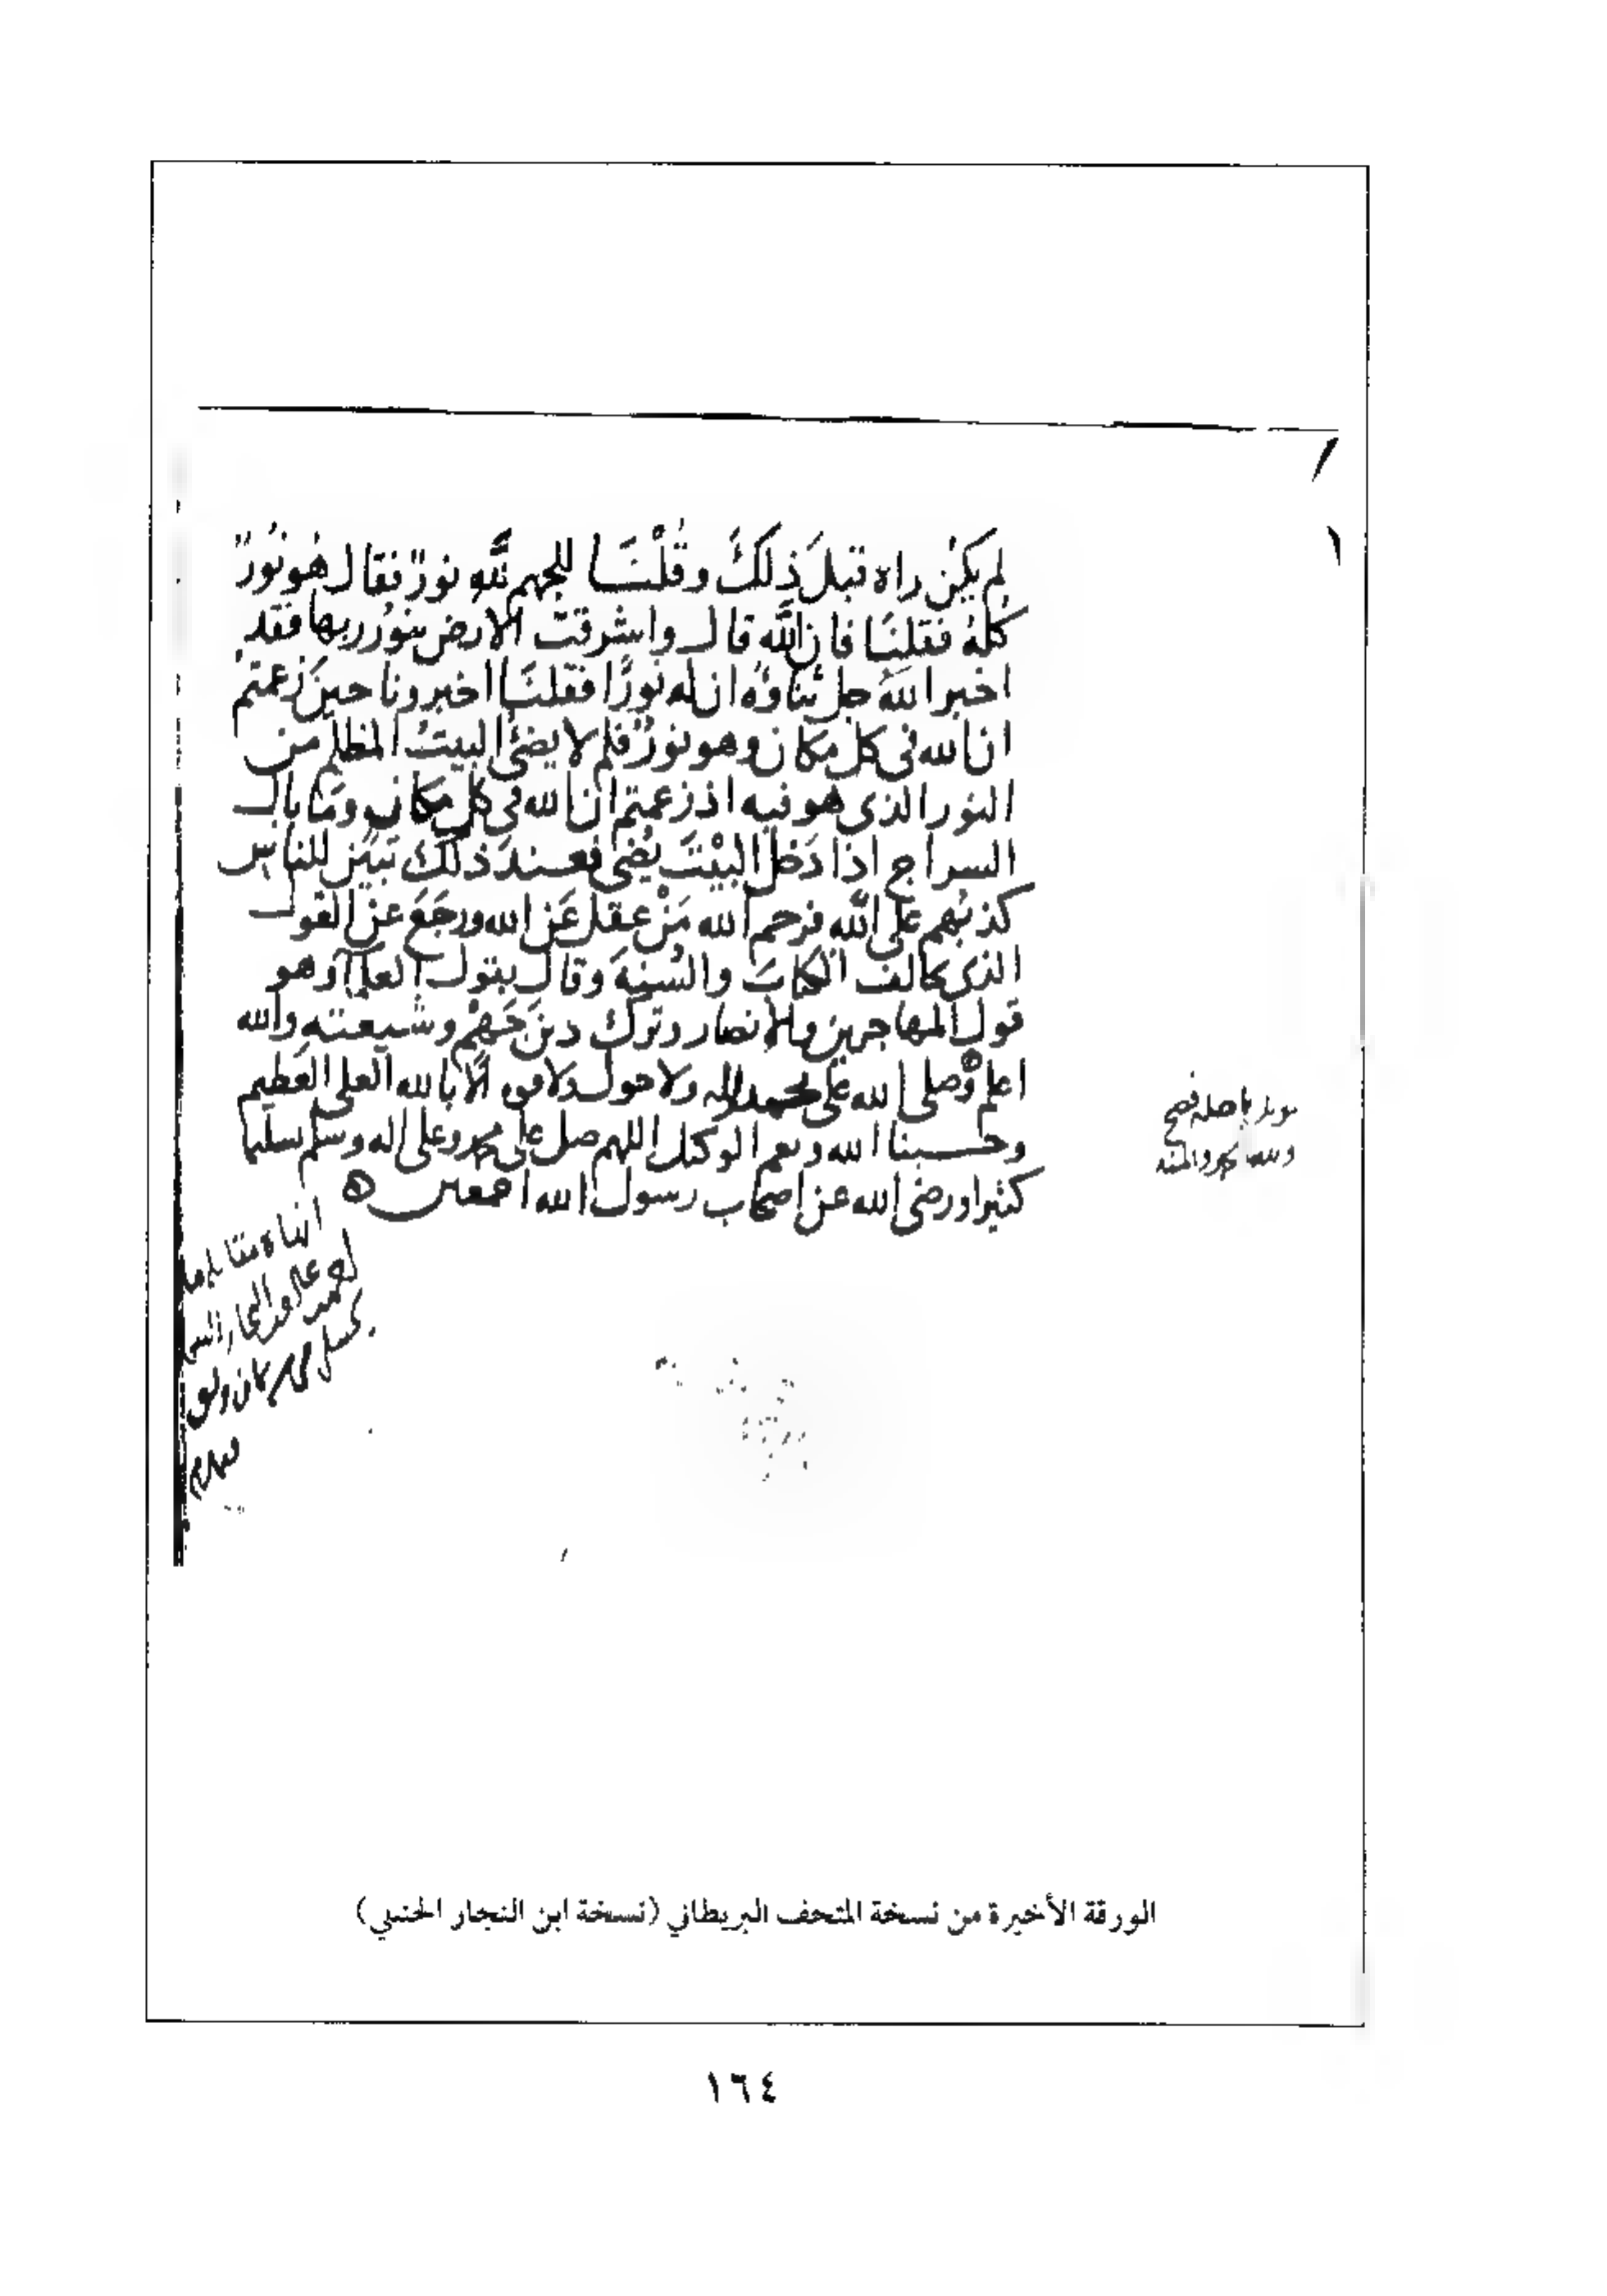 لم يكن راه قبلَ ذلكَ وقُلْنَا للجهم للّه نورٌ فقال هُو نُورٌ
كلهُ فقلنَا فان اللّه قال واشرقت الارض بنُور ربها فقد
اخبر اللهُ جل ثناوُه ان له نورًا فقلنَا اخبرونا حينَ زعمتمْ
ان الله فى كل مكان وهو نورٌ فلم لا يضئُ البيتُ المظلم من
النور الذى هو فيه اذ زعمتم ان الله فى كل مكان ومَا بال
السراج اذا دَخل البيْتَ يُضى فعند ذلك تبيّن للناس
كذبهم على اللّه فرحم الله مَنْ عقل عَن الله ورجَعَ عن القول
الذى خالف الكتابَ والسُنهَ وقال بقول العلمآ وهو
قول المهاجرين والانصار وتركَ دينَ جَهْم وشيعته والله
اعلم وصلى الله على محمد واله ولا حول ولا قوه الّا بالله العلى العَظيم
وحسبنا الله ونعم الوكيل اللهم صل على محمد وعلى اله وسلم تسليما
كثيرا ورضى الله عن اصحاب رسول الله اجمعين
بأصله فصح
ولله الحمد والمنه
الورقة الأخيرة من نسخة المتحف البريطاني (نسخة ابن النجار الحنبلي)
١٦٤